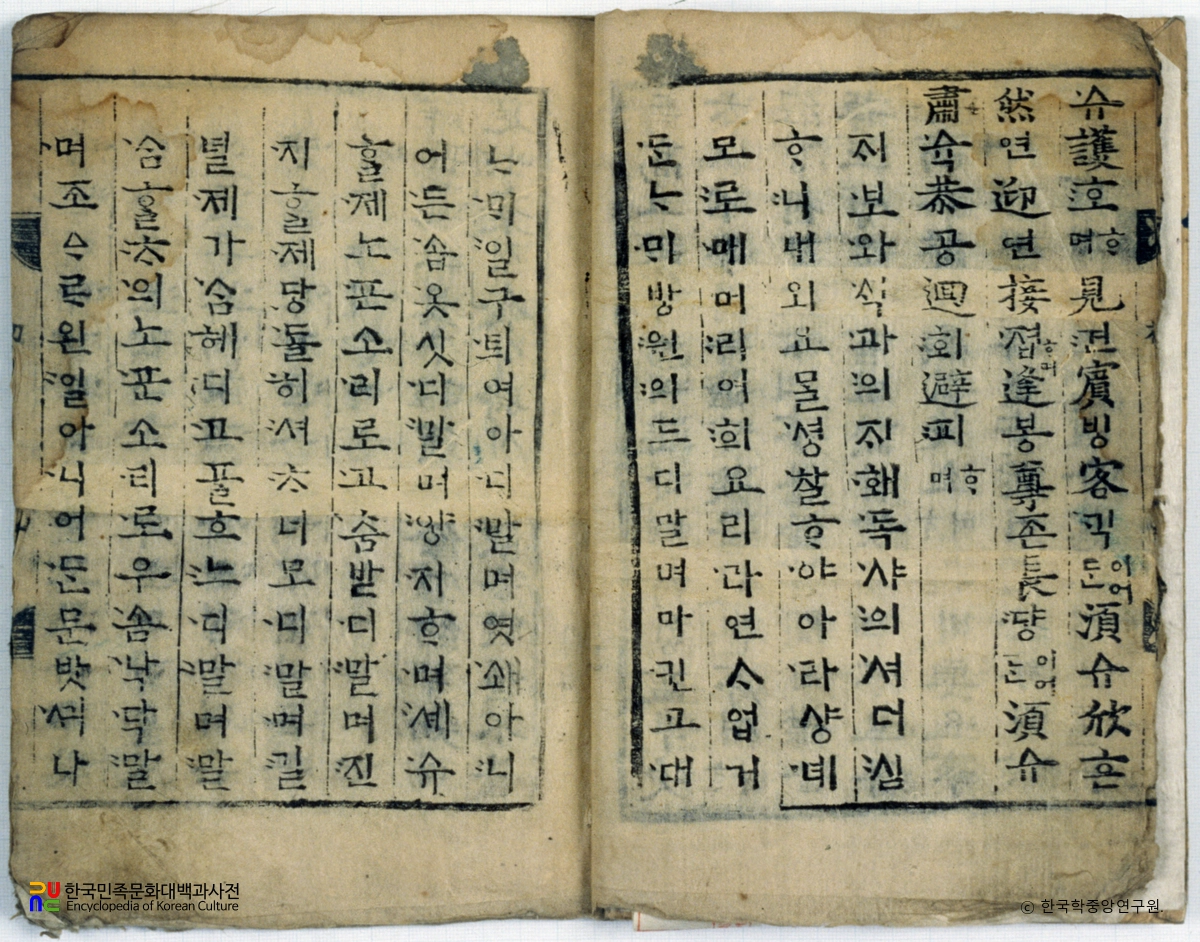 슈護호ᄒᆞ며見견賓빙客ᄀᆡᆨ이어든須슈欣흔
然연迎연接졉ᄒᆞ며逢봉尊존長댱이어든須슈
肅슉恭공廻회避피ᄒᆞ며
ᄌᆡ보와식과의ᄌᆡ홰독샤의셔더심
ᄒᆞ니내외요ᄆᆞᆯ셩찰ᄒᆞ야아라샹녜
모로매머리여희요리라연ᄉᆞ업거
든ᄂᆞᄆᆡ방원의드디말며마ᄀᆞᆫ고대
ᄂᆞᄆᆡ일구틔여아디말며엿쇄아니
어든솜옷싯디말며양지ᄒᆞ며셰슈
ᄒᆞᆯ제노ᄑᆞᆫ소리로고춤받디말며진
지ᄒᆞᆯ제당돌히셔ᄎᆞ너모디말며길
녈제가ᄉᆞᆷ헤디고ᄑᆞᆯ흐느디말며말
ᄉᆞᆷᄒᆞᆯᄎᆞ의노ᄑᆞᆫ소리로우ᅀᅮᆷ낙닥말
며조ᅀᆞᄅᆞ왼일아니어든문밧ᄭᅴ나
한국민족문화대백과사전
Encyclopedia of Korean Culture
ⓒ 한국학중앙연구원.